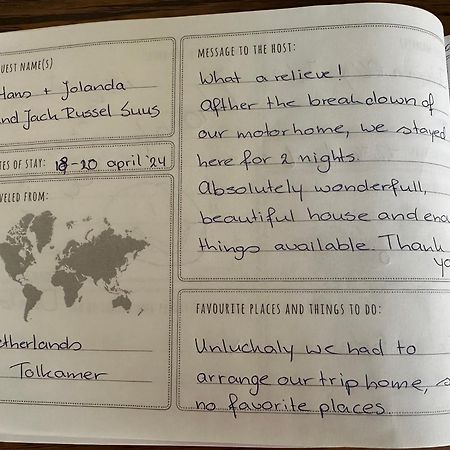 UEST NAME(S)
Hans + Jolanda
and Jack Russel Suus
TES OF STAY: 18-20 april '24
VELED FROM:
etherlands
Tolkamer
MESSAGE TO THE HOST:
What a relieve!
Afther the breakdown of
our motorhome, we stayed
here for 2 nights.
Absolutely wonderfull,
beautiful house and eno
things available. Thank
yo
FAVOURITE PLACES AND THINGS TO DO:
Unluchaly we had to
arrange our trip home, s
no favorite places.